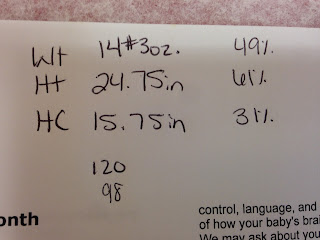 Wt 14#3oz. 49%
Ht 24.75in 61%
HC 15.75in 31%
120
98
onth
control, language, and
of how your baby's brai
We may ask about you